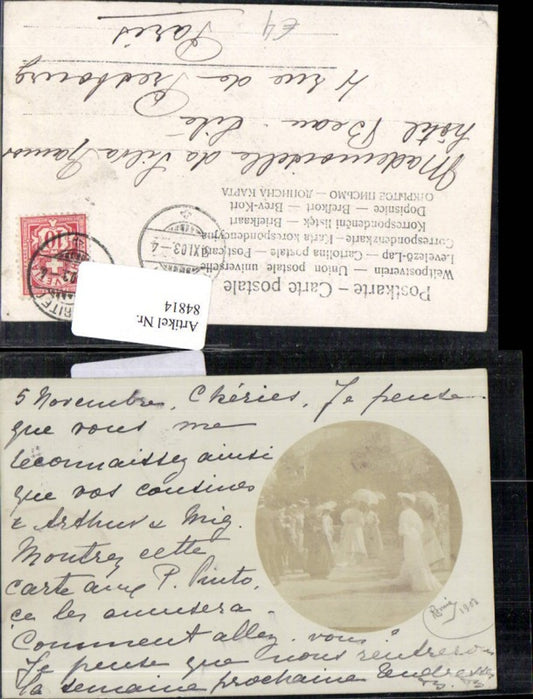 Postkarte – Carte postale
Weltpostverein — Union postale universelle
Levelező-Lap — Cartolina postale — Postcard
Correspondenzkarte — Karta korespondencyjna
Korrespondenční lístek — Briefkaart
Dopisnice — Brefkort — Brev-Kort
ОТКРЫТОЕ ПИСЬМО — ДОПИСНА КАРТА
Mademoiselle da Silva Ramos
hôtel Beau-Site
4 rue de Presbourg
Paris
£4
XI.03.-4
Artikel Nr.
84814
5 Novembre, Chéries, Je pense
que vous me
reconnaissez ainsi
que vos cousines
& Arthur & Mig.
Montrez cette
carte aux P. Pinto,
ça les amusera.
Comment allez-vous?
Je pense que nous rentrerons
la semaine prochaine Tendresses
1903